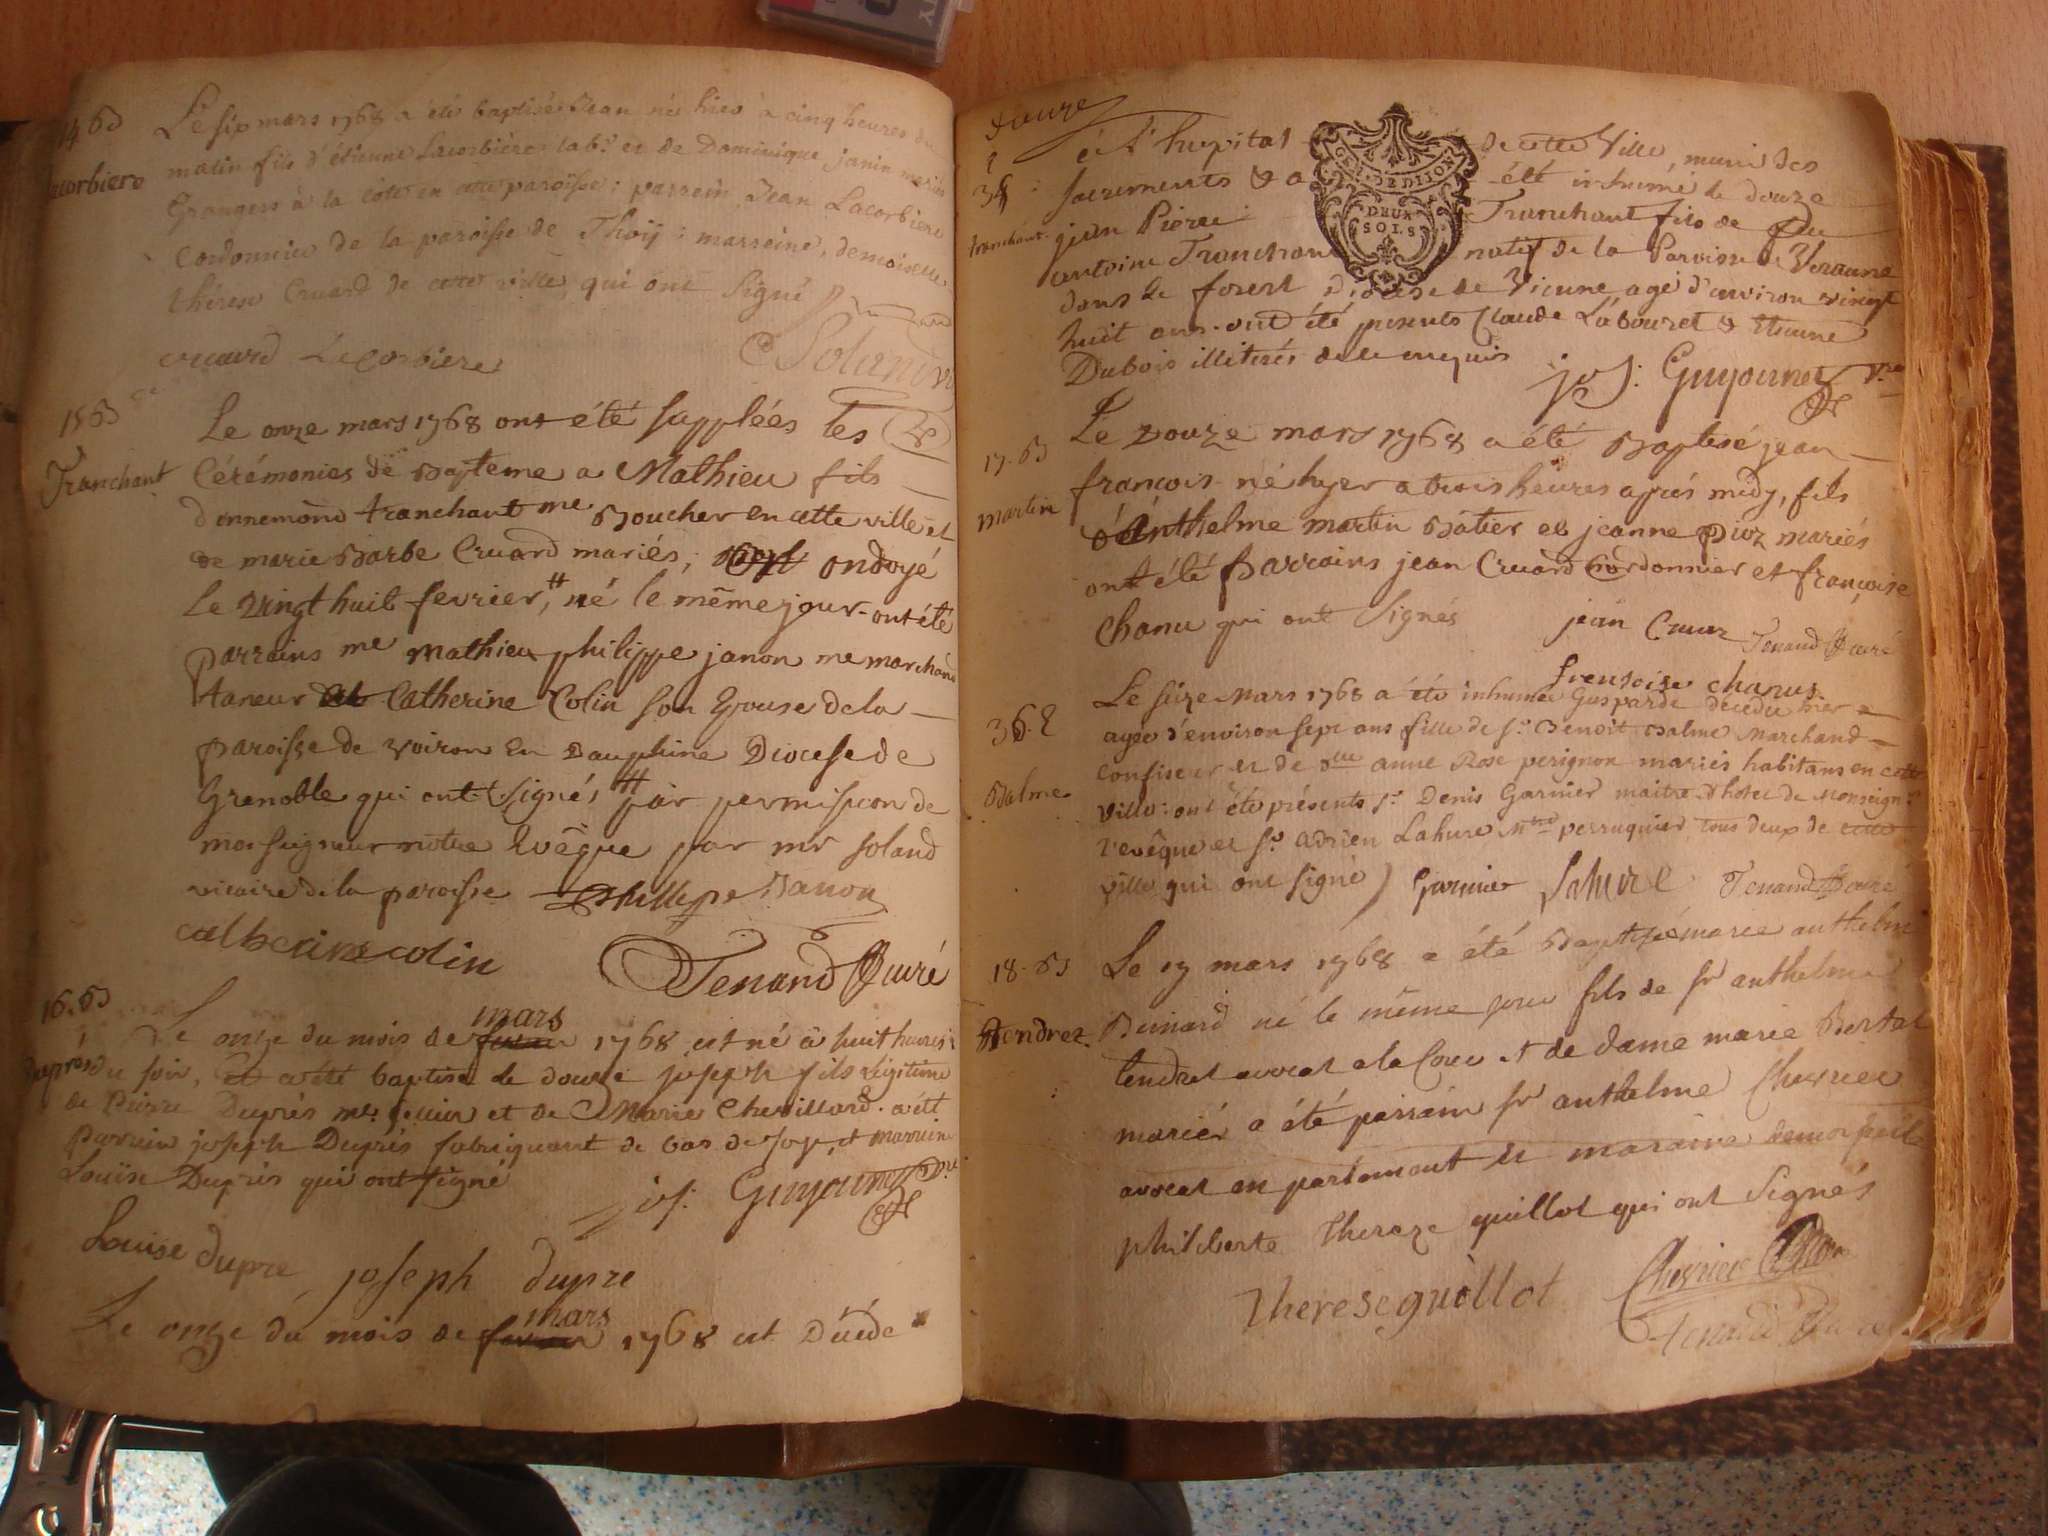 14 B
Lacorbiere
Le six mars 1768 a été baptisé Jean né hier à cinq heures du
matin fils d'étienne Lacorbiere lab.r et de Dominique janin mariés
Grangers à la côte en cette paroisse: parrein Jean Lacorbiere
Cordonnier de la paroisse de Thoÿ: marreine, demoiselle
thérese Cruard de cette ville, qui ont signé
cruard Lacorbiere
Soland vi
15 B
Tranchant
Le onze mars 1768 ont été supplées les
Cérémonies de Bapteme a Mathieu fils
d'ennemond tranchant me Boucher en cette ville et
de marie Barbe Cruard mariés, ondoyé
Le vingt huit fevrier, # né le même jour - ont été
parrains me mathieu philippe janon me marchand
taneur et Catherine Colin son Epouse de la
paroisse de voiron En Dauphine Diocese de
Grenoble qui ont signés # par permission de
monseigneur notre Evêque par mr soland
vicaire de la paroisse Phillipe Janon
catherine colin
Tenand Curé
16. B
Duprés
Le onze du mois de mars 1768 est né à huit heures
du soir, et a été baptisé le douze joseph fils légitime
de Pierre Duprés et de Marie Chevillard. a été
Parrain joseph Duprés fabriquant de bas de soye, et marraine
Louise Duprés qui ont signé
jos: Guyonnet
Louise dupre joseph dupre
Le onze du mois de mars 1768 est Décédé
douze
é à l'hopital de cette Ville, muni des
35
tranchant
sacrements & a été inhumé le douze
jean Pierre Tranchant fils de feu
antoine Tranchant natif de la Paroisse de Veranne
dans le forest Diocese de Vienne agé d'environ vingt
huit ans. ont été presents Claude Labouret & Etienne
Dubois illiterés de ce enquis
jos: Guyonnet
GEN. DE DIJON
DEUX
SOLS
17. B
martin
Le Douze mars 1768 a été Baptisé jean
françois né hyer a trois heures aprés midy, fils
d'Anthelme martin Bâtier et jeanne mariés
ont été Parrains jean Cruard Cordonnier et françoise
Chanu qui ont signés
jean Cruar Tenand Curé
frensoise chanus
36. E
Balme
Le seize Mars 1768 a été inhumée Gasparde décédée hier
agée d'environ sept ans fille de s.r Benoît Balme Marchand
Confiseur et de dlle anne Rose perignon mariés habitans en cette
ville: ont été présents s.r Denis Garnier maitre d'hôtel de Monseign.r
l'evêque et s.r adrien Lahure Mtre perruquier tous deux de cette
ville qui ont signé) Garnier Lahure Tenand Curé
18. B
Tendret
Le 17 mars 1768 a été Baptizé marie anthelme
Bernard né le même jour fils de sr anthelme
tendret avocat a la Cour et de dame marie
mariés a été parrain sr anthelme Chevrier
avocat en parlement et maraine demoiselle
philiberte thereze guillot qui ont signés
therese guillot
Chevrier
Tenand Curé